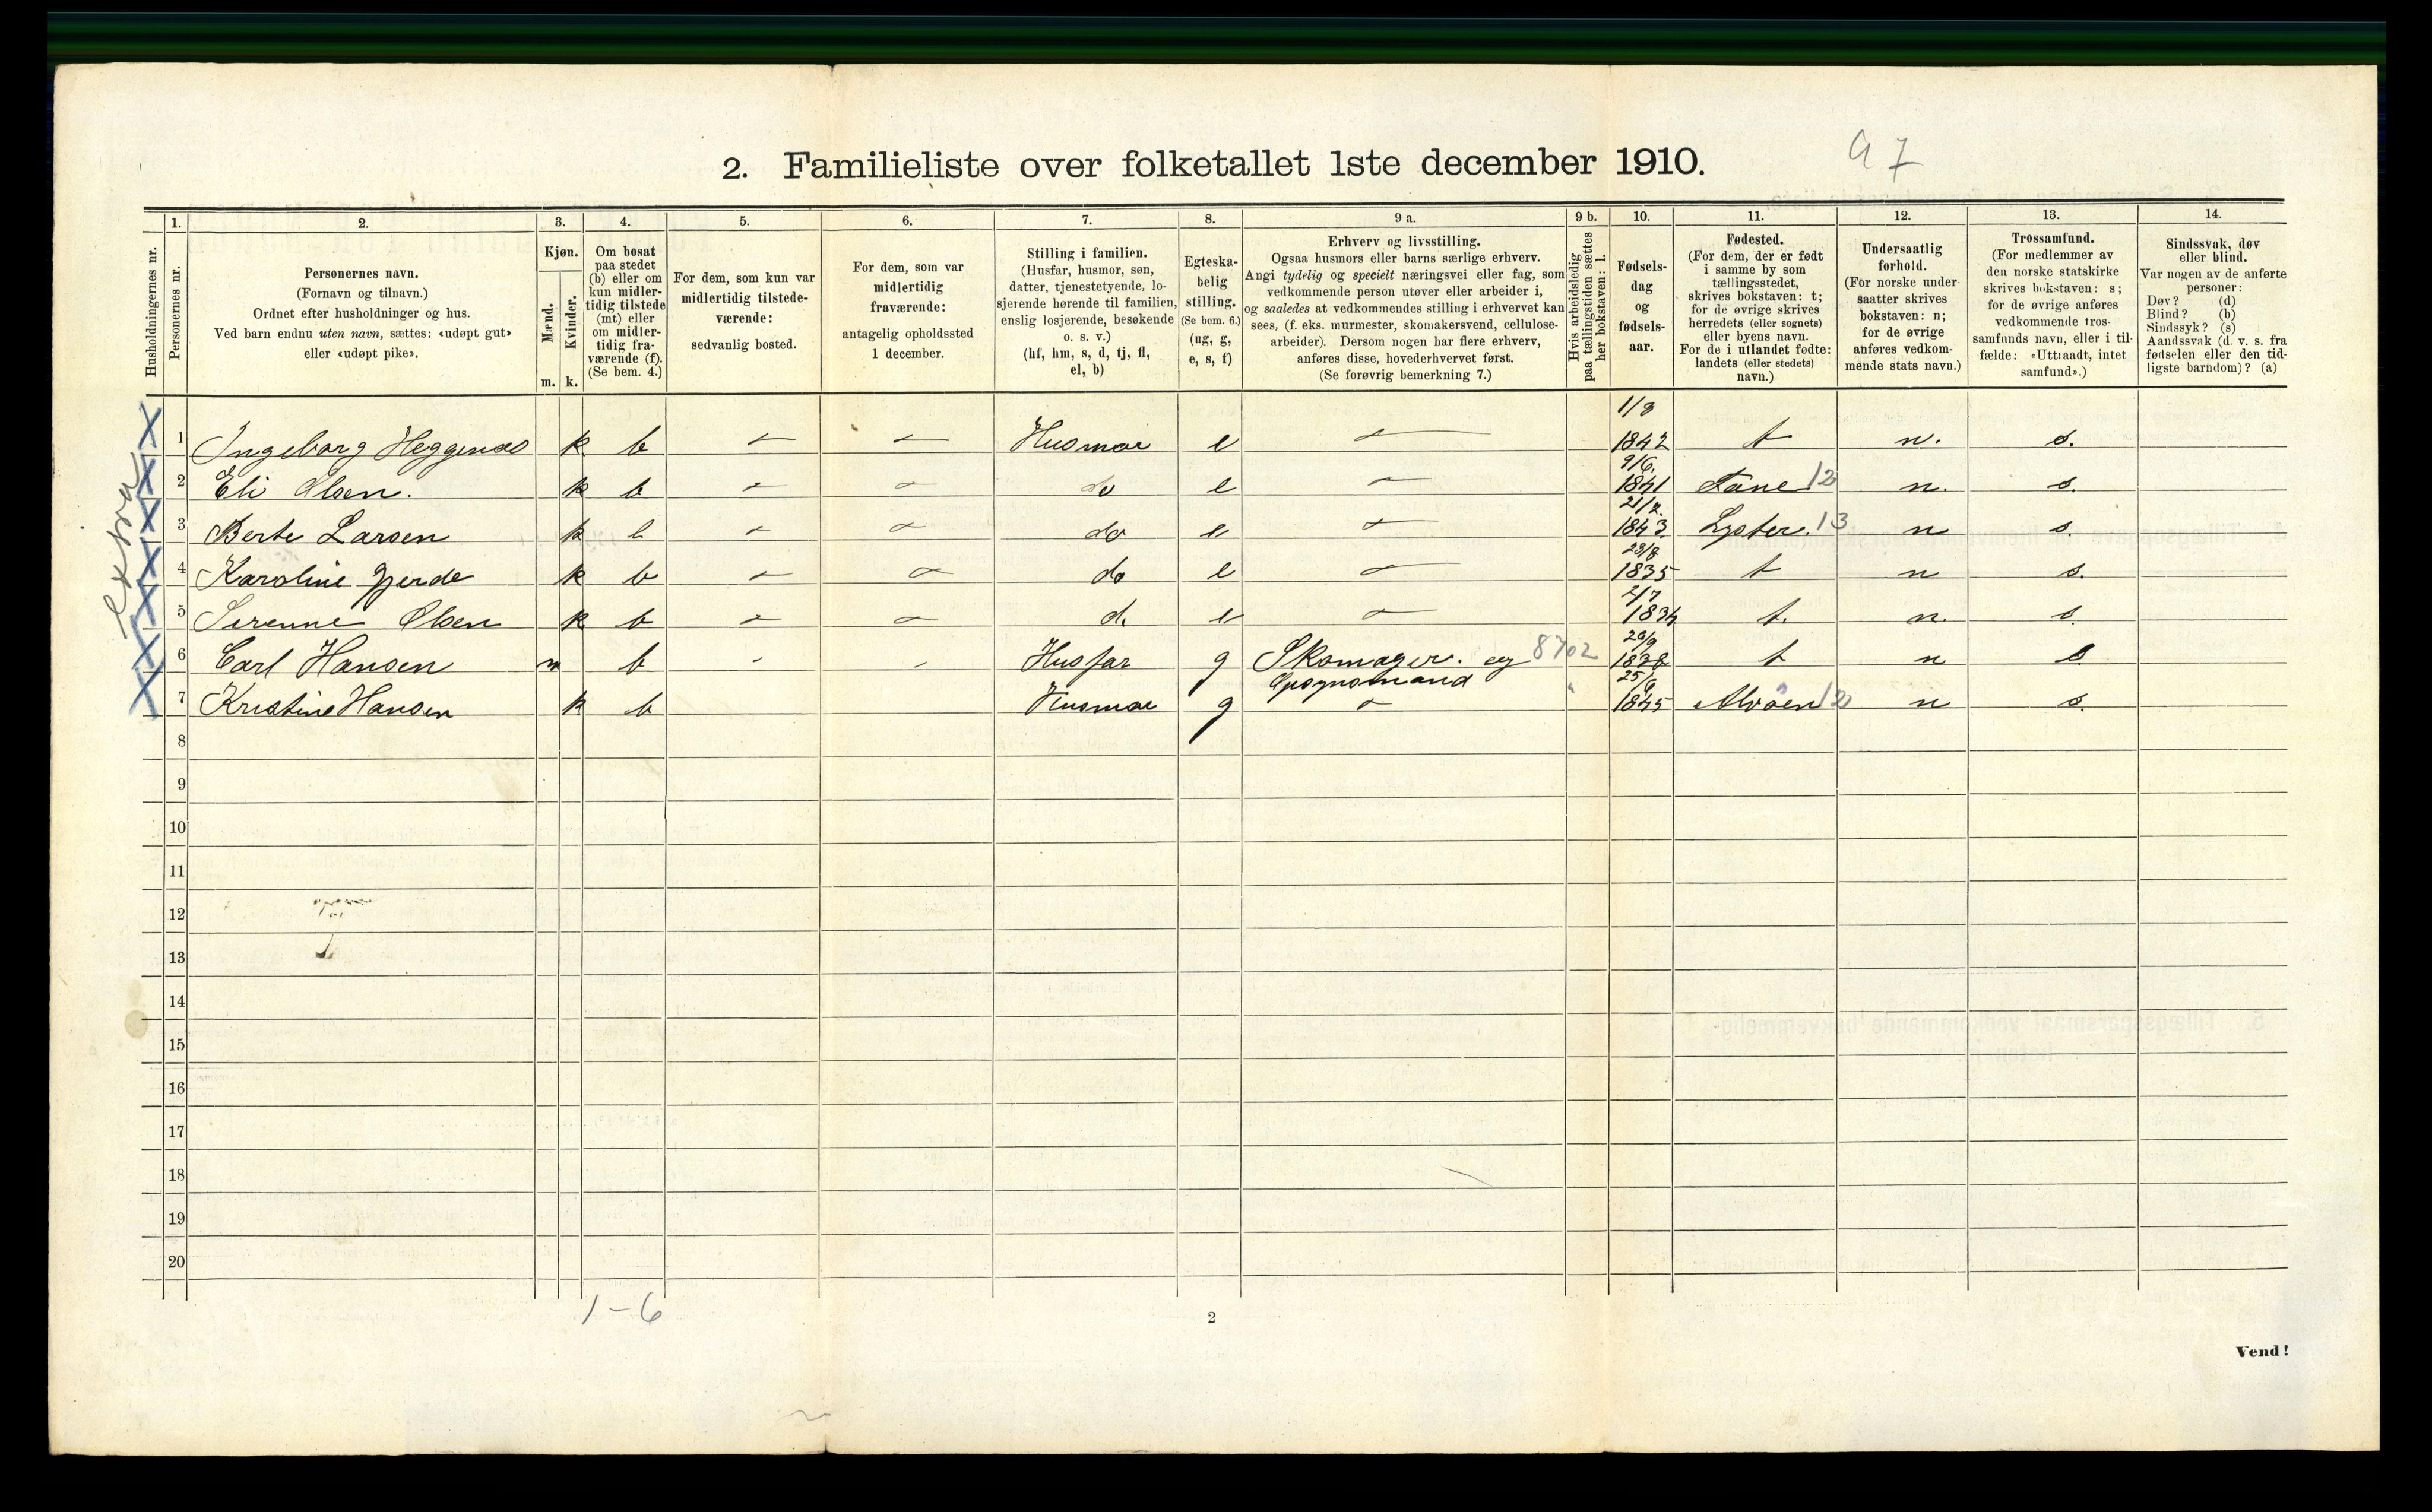 2. Familieliste over folketallet 1ste december 1910.
97
1. 2. 3. 4. 5. 6. 7. 8. 9 a. 9 b. 10. 11. 12. 13. 14.
Husholdningernes nr.
Personernes nr.
Personernes navn.
(Fornavn og tilnavn.)
Ordnet efter husholdninger og hus.
Ved barn endnu uten navn, sættes: «udøpt gut»
eller «udøpt pike».
Kjøn.
Mænd.
Kvinder.
m. k.
Om bosat
paa stedet
(b) eller om
kun midler-
tidig tilstede
(mt) eller
om midler-
tidig fra-
værende (f).
(Se bem. 4.)
For dem, som kun var
midlertidig tilstede-
værende:
sedvanlig bosted.
For dem, som var
midlertidig
fraværende:
antagelig opholdssted
1 december.
Stilling i familien.
(Husfar, husmor, søn,
datter, tjenestetyende, lo-
sjerende hørende til familien,
enslig losjerende, besøkende
o. s. v.)
(hf, hm, s, d, tj, fl,
el, b)
Egteska-
belig
stilling.
(Se bem. 6.)
(ug, g,
e, s, f)
Erhverv og livsstilling.
Ogsaa husmors eller barns særlige erhverv.
Angi tydelig og specielt næringsvei eller fag, som
vedkommende person utøver eller arbeider i,
og saaledes at vedkommendes stilling i erhvervet kan
sees, (f. eks. murmester, skomakersvend, cellulose-
arbeider). Dersom nogen har flere erhverv,
anføres disse, hovederhvervet først.
(Se forøvrig bemerkning 7.)
Hvis arbeidsledig
paa tællingstiden sættes
her bokstaven: l.
Fødsels-
dag
og
fødsels-
aar.
Fødested.
(For dem, der er født
i samme by som
tællingsstedet,
skrives bokstaven: t;
for de øvrige skrives
herredets (eller sognets)
eller byens navn.
For de i utlandet fødte:
landets (eller stedets)
navn.)
Undersaatlig
forhold.
(For norske under-
saatter skrives
bokstaven: n;
for de øvrige
anføres vedkom-
mende stats navn.)
Trossamfund.
(For medlemmer av
den norske statskirke
skrives bokstaven: s;
for de øvrige anføres
vedkommende tros-
samfunds navn, eller i til-
fælde: «Uttraadt, intet
samfund».)
Sindssvak, døv
eller blind.
Var nogen av de anførte
personer:
Døv? (d)
Blind? (b)
Sindssyk? (s)
Aandssvak (d. v. s. fra
fødselen eller den tid-
ligste barndom)? (a)
extra
1 Ingeborg Heggenæs k b — — Husmor e — 1/8 1842 t n. s.
2 Eli Olsen. k b — — do e — 9/6. 1841 Fane 12 n. s.
3 Berte Larsen k b — — do e — 21/2. 1843. Lyster. 13 n s.
4 Karoline Gjerde k b — — do e — 23/8 1835 t n s.
5 Serenne Olsen k b — — d. e — 2/7 1834 t. n. s.
6 Carl Hansen m b - - Husfar g Skomager. og 8702 29/9 1838 t n s
7 Kristine Hansen k b Husmor g — 25/9 1845 Alvøen 12 n s.
8
9
10
11
12
13
14
15
16
17
18
19
20
1-6
2
Vend!